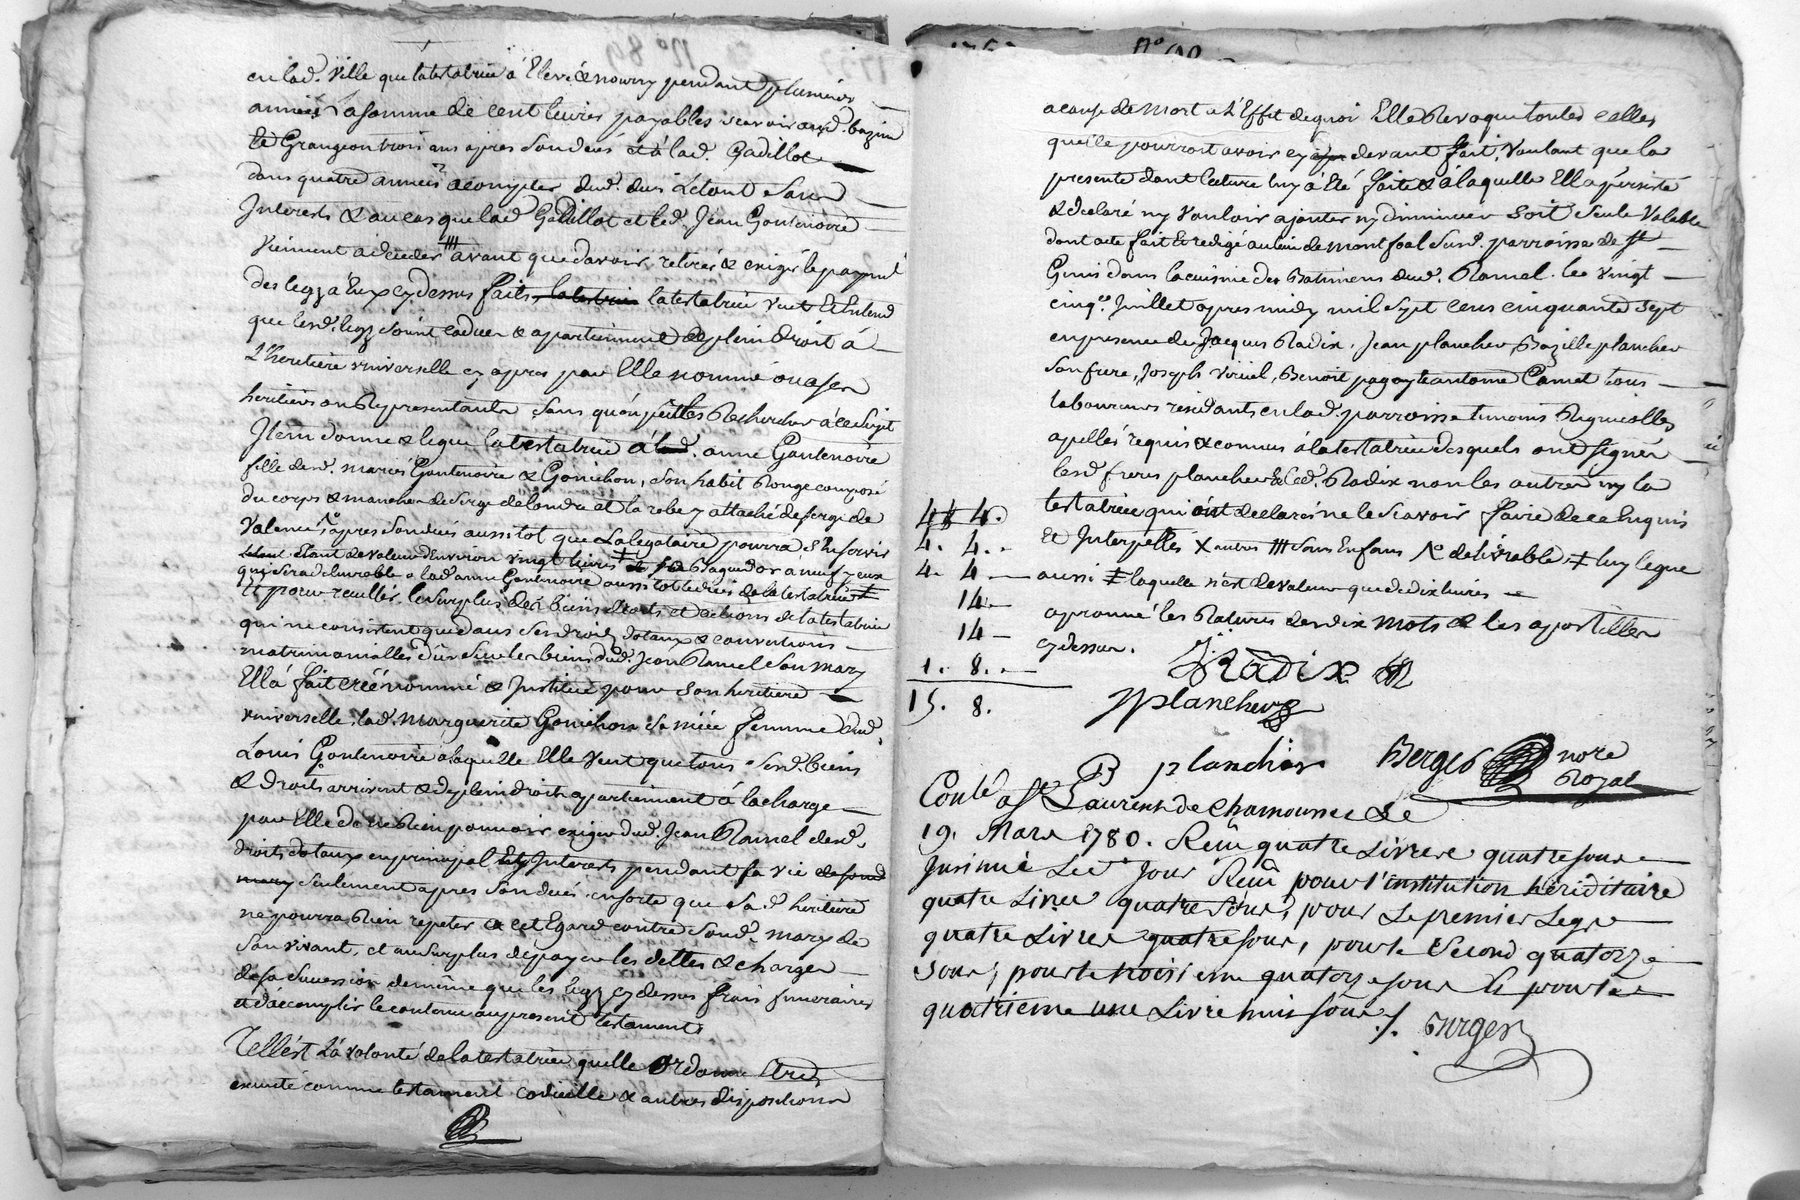 en lad. ville que la testatrice a Elevé & nourry pendant plusieurs
années La somme de cent livres payables scavoir aud. bazin
Grangeon trois ans apres son deces et à lad. Gadillot
dans quatre années a compter dud. deces Le tout sans
Interests & au cas que lad. Gadillot et led. Jean Goutenoire
viennent a deceder # avant que davoir retirés & exigé le payemt
des legz à Eux cy dessus faits la testatrice veut Et Entend
que lesd. legz soint caducs & apartiennent de plein droit à
L'heritiere universelle cy apres par Elle nommé ou a ses
heritiers ou Representants sans qu'on puisse Rechercher à ce sujet
Item donne & legue la testatrice à lad. anne Goutenoire
fille desd. mariés Goutenoire & Gonichon, son habit Rouge composé
du corps & manches de serge de londre et la robe y attaché de serge de
Valence apres son deces aussitot que La legataire pourra s'En servir
Le tout Etant de valeur d'environ vingt livres
qui sera delivrable a lad. anne Goutenoire aussitot le deces de la testatrice
Et pour le surplus des biens droits et actions de la testatrice
qui ne consistent que dans ses droits dotaux & conventions
matrimonialles dus sur les biens dud. Jean Ramel son mary
Ell'a fait créé nommé & Institué pour son heritiere
universelle, lad. Marguerite Gonichon sa niéce femme dud.
Louis Goutenoire a laquelle Elle veut que tous sesd. biens
& droits arrivent & de plein droit apartiennent à la charge
par Elle de ne Rien pouvoir exiger dud. Jean Ramel desd.
droits dotaux en principal Et Interests pendant sa vie de son d
mary seulement apres son deces, ensorte que sa d. heritiere
ne pourra Rien repeter a cet Egard contre sond. mary de
son vivant, et au surplus de payer les dettes & charges
de sa succession de même que les legz cy dessus frais funeraires
et d'accomplir le contenu au present testament
Telle est La volonté de la testatrice quelle ordonne Etre
executé comme testament codicille & autres dispositions
a cause de mort a L'Effet de quoi Elle Revoque toutes celles
quelle pourroit avoir cy devant fait, voulant que la
presente dont lecture luy à Eté faite & a laquelle Ell'a persisté
& declaré ny vouloir ajouter ny diminuer soit seule valable
dont acte fait Et redigé au lieu de montfoal susd. parroisse de St
Genis dans la cuisine des Batimens dud. Ramel. le vingt
cinqe. Juillet apres midy mil sept cens cinquante sept
en presence de Jacques Radix, Jean plancher, Bazille plancher
son frere, Joseph Viriel, Benoit pagay & antoine Camet tous
laboureurs residants en lad. parroisse temoins Regnicolles
apellés requis & connus à la testatrice desquels ont signés
lesd. freres plancher & led. Radix non les autres ny la
testatrice qui ont declarés ne le scavoir faire de ce Enquis
Et Interpellés X autres # sans Enfans delivrable luy legue
aussi laquelle n'est de valeur que de dix livres
aprouvé les Ratures de dix mots & les apostilles
cy dessus.
4 4.
4. 4.
4. 4
14
14
1. 8.
15. 8.
JRADIX
J plancher
B plancher
Berges nore
Royal
Conlé a St Laurent de Chamousset Le
19. Mars 1780. Reçu quatre Livres quatre sous
Insinué Led. Jour Reçu pour l'institution hériditaire
quatre Livres quatre sous, pour Le premier Legs
quatre Livres quatre sous, pour le second quatorze
sous, pour le troisieme quatorze sous Et pour le
quatrieme une Livre huit sous /.
Berges